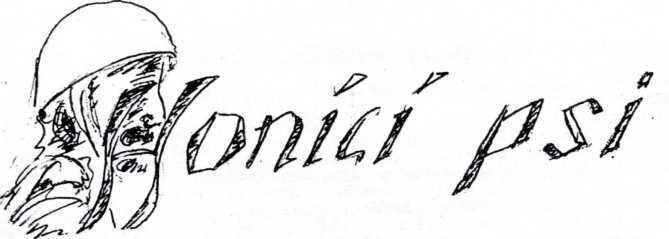 Honící psi